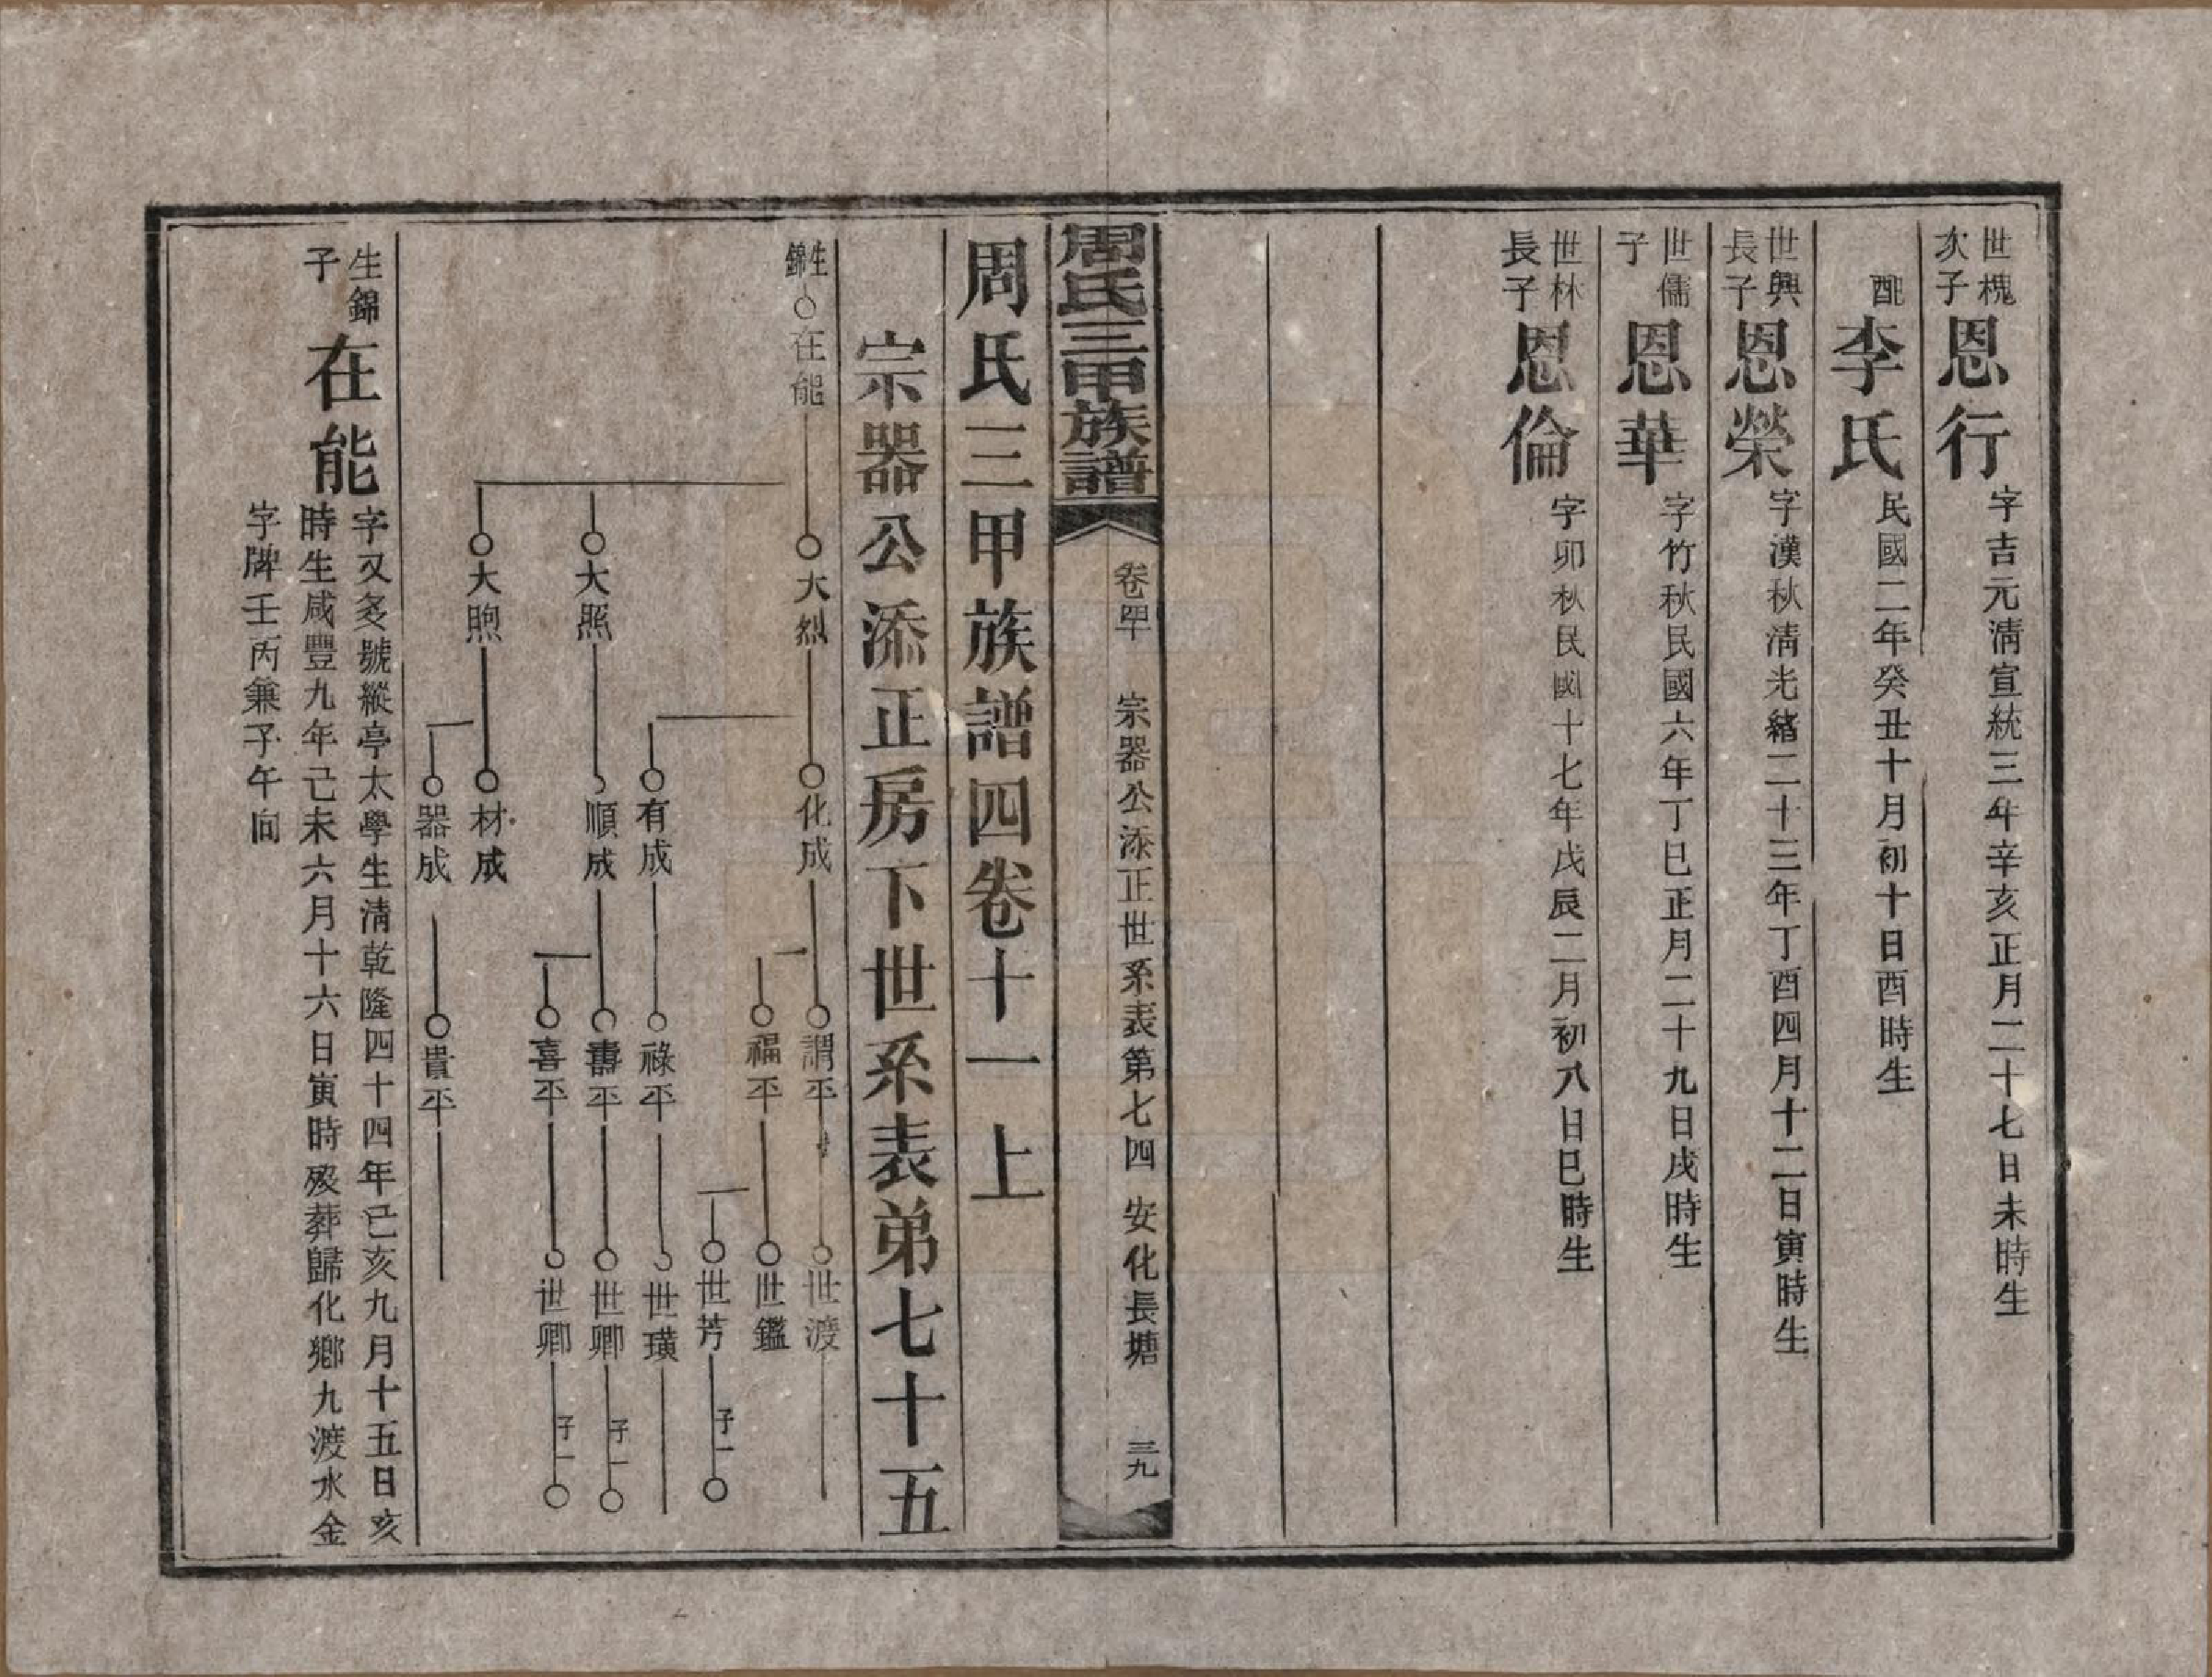 世槐次子 恩行 字吉元淸宣統三年辛亥正月二十七日未時生
配 李氏 民國二年癸丑十月初十日酉時生
世興長子 恩榮 字漢秋淸光緖二十三年丁酉四月十二日寅時生
世儒子 恩華 字竹秋民國六年丁巳正月二十九日戌時生
世林長子 恩倫 字卯秋民國十七年戊辰二月初八日巳時生
周氏三甲族譜 卷四 宗器公添正世系表第七四 安化長塘 三九
周氏三甲族譜四卷十一上
宗器公添正房下世系表弟七十五
生錦 在能 大烈 化成 謂平 世渡
福平 世鑑
世芳 子一
有成 祿平 世璜
大照 順成 壽平 世卿 子一
喜平 世卿 子一
大煦 材成
器成 貴平
生錦子 在能 字又㚊號縱亭太學生淸乾隆四十四年己亥九月十五日亥
時生咸豐九年己未六月十六日寅時歿葬歸化鄕九渡水金
字牌壬丙兼子午向